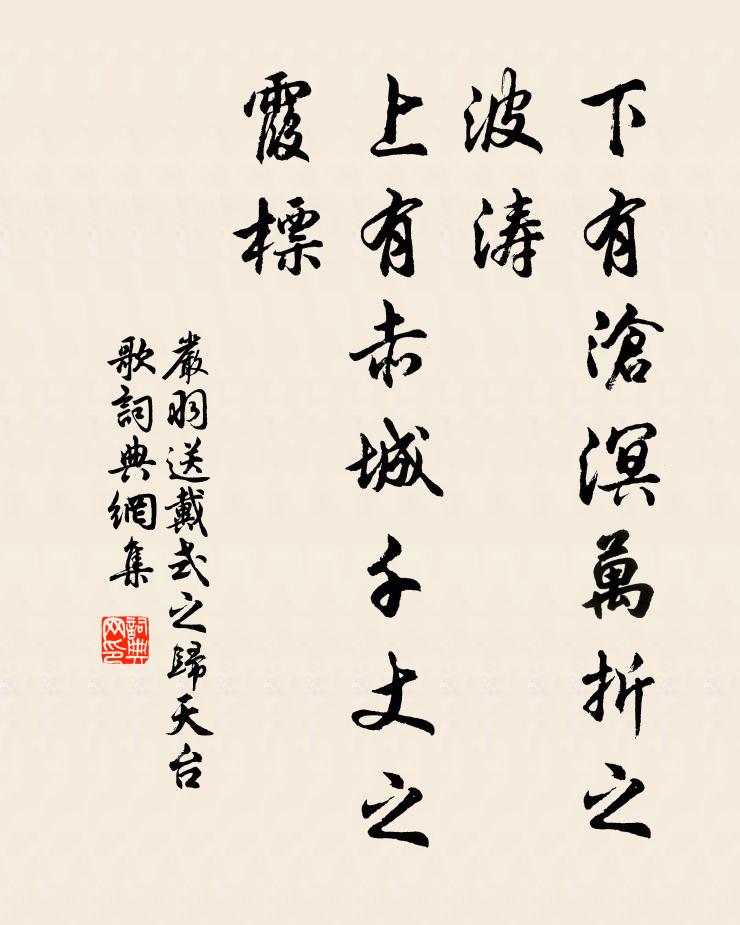 下有滄溟萬折之
波涛
上有赤城千丈之
霞標
嚴羽送戴式之歸天台
歌詞典網集
詞典
网印